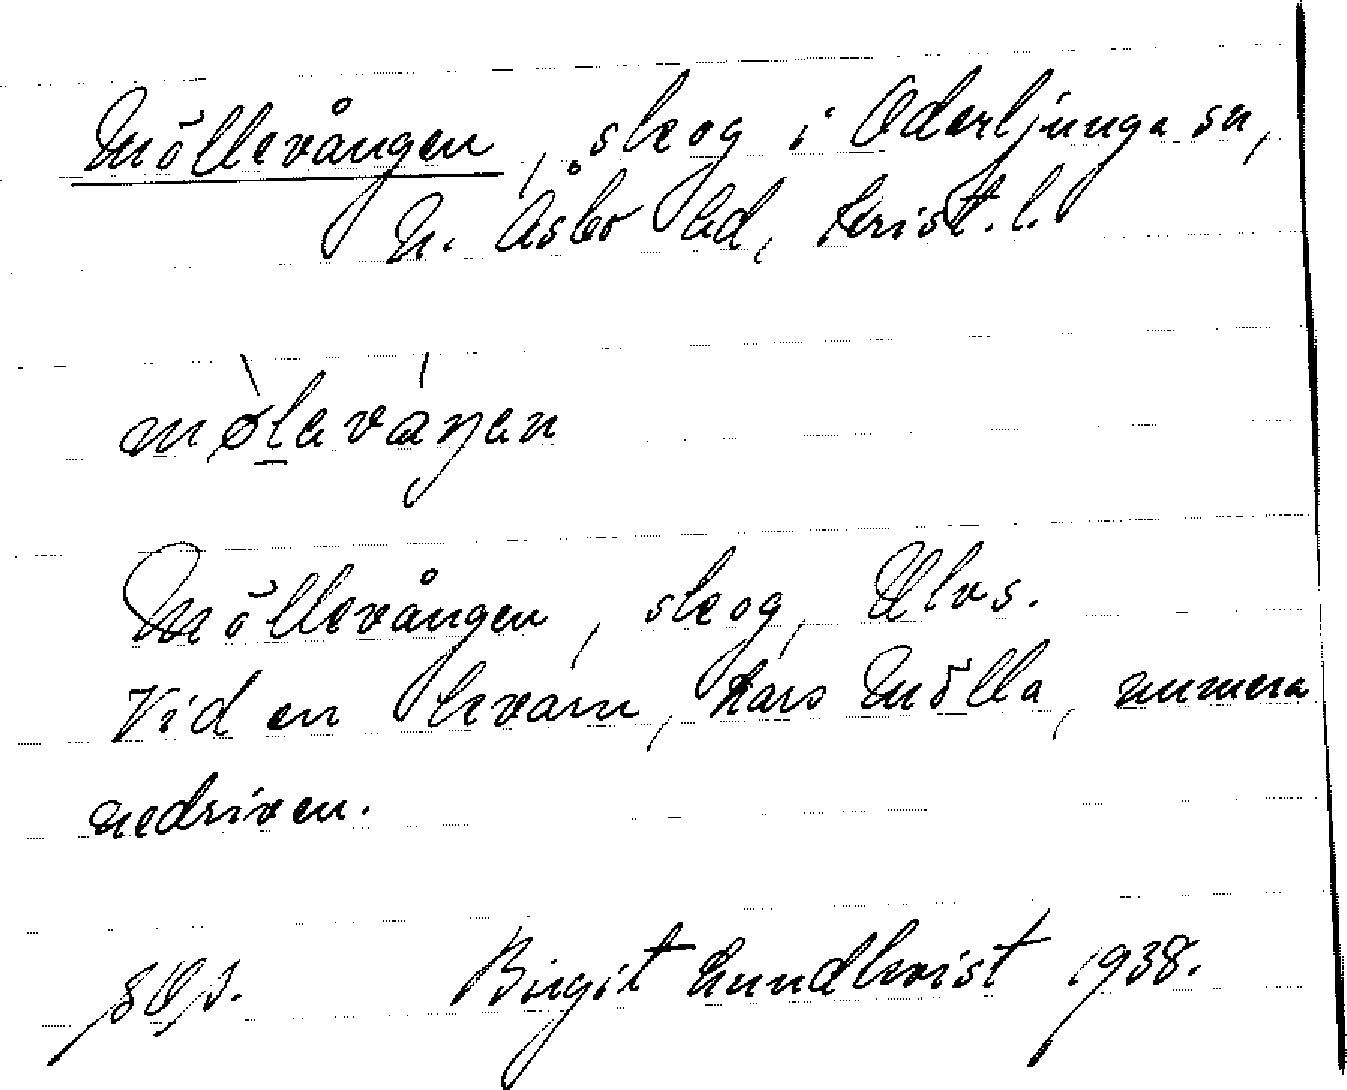 Möllevången, skog i Oderljunga sn,
N. Åsbo hd, Krist. l.
mø̀leváŋen
Möllevången, skog, Ulvs.
Vid en kvarn, Lars Mölla, numera
nedriven.
Birgit Lundkvist 1938.